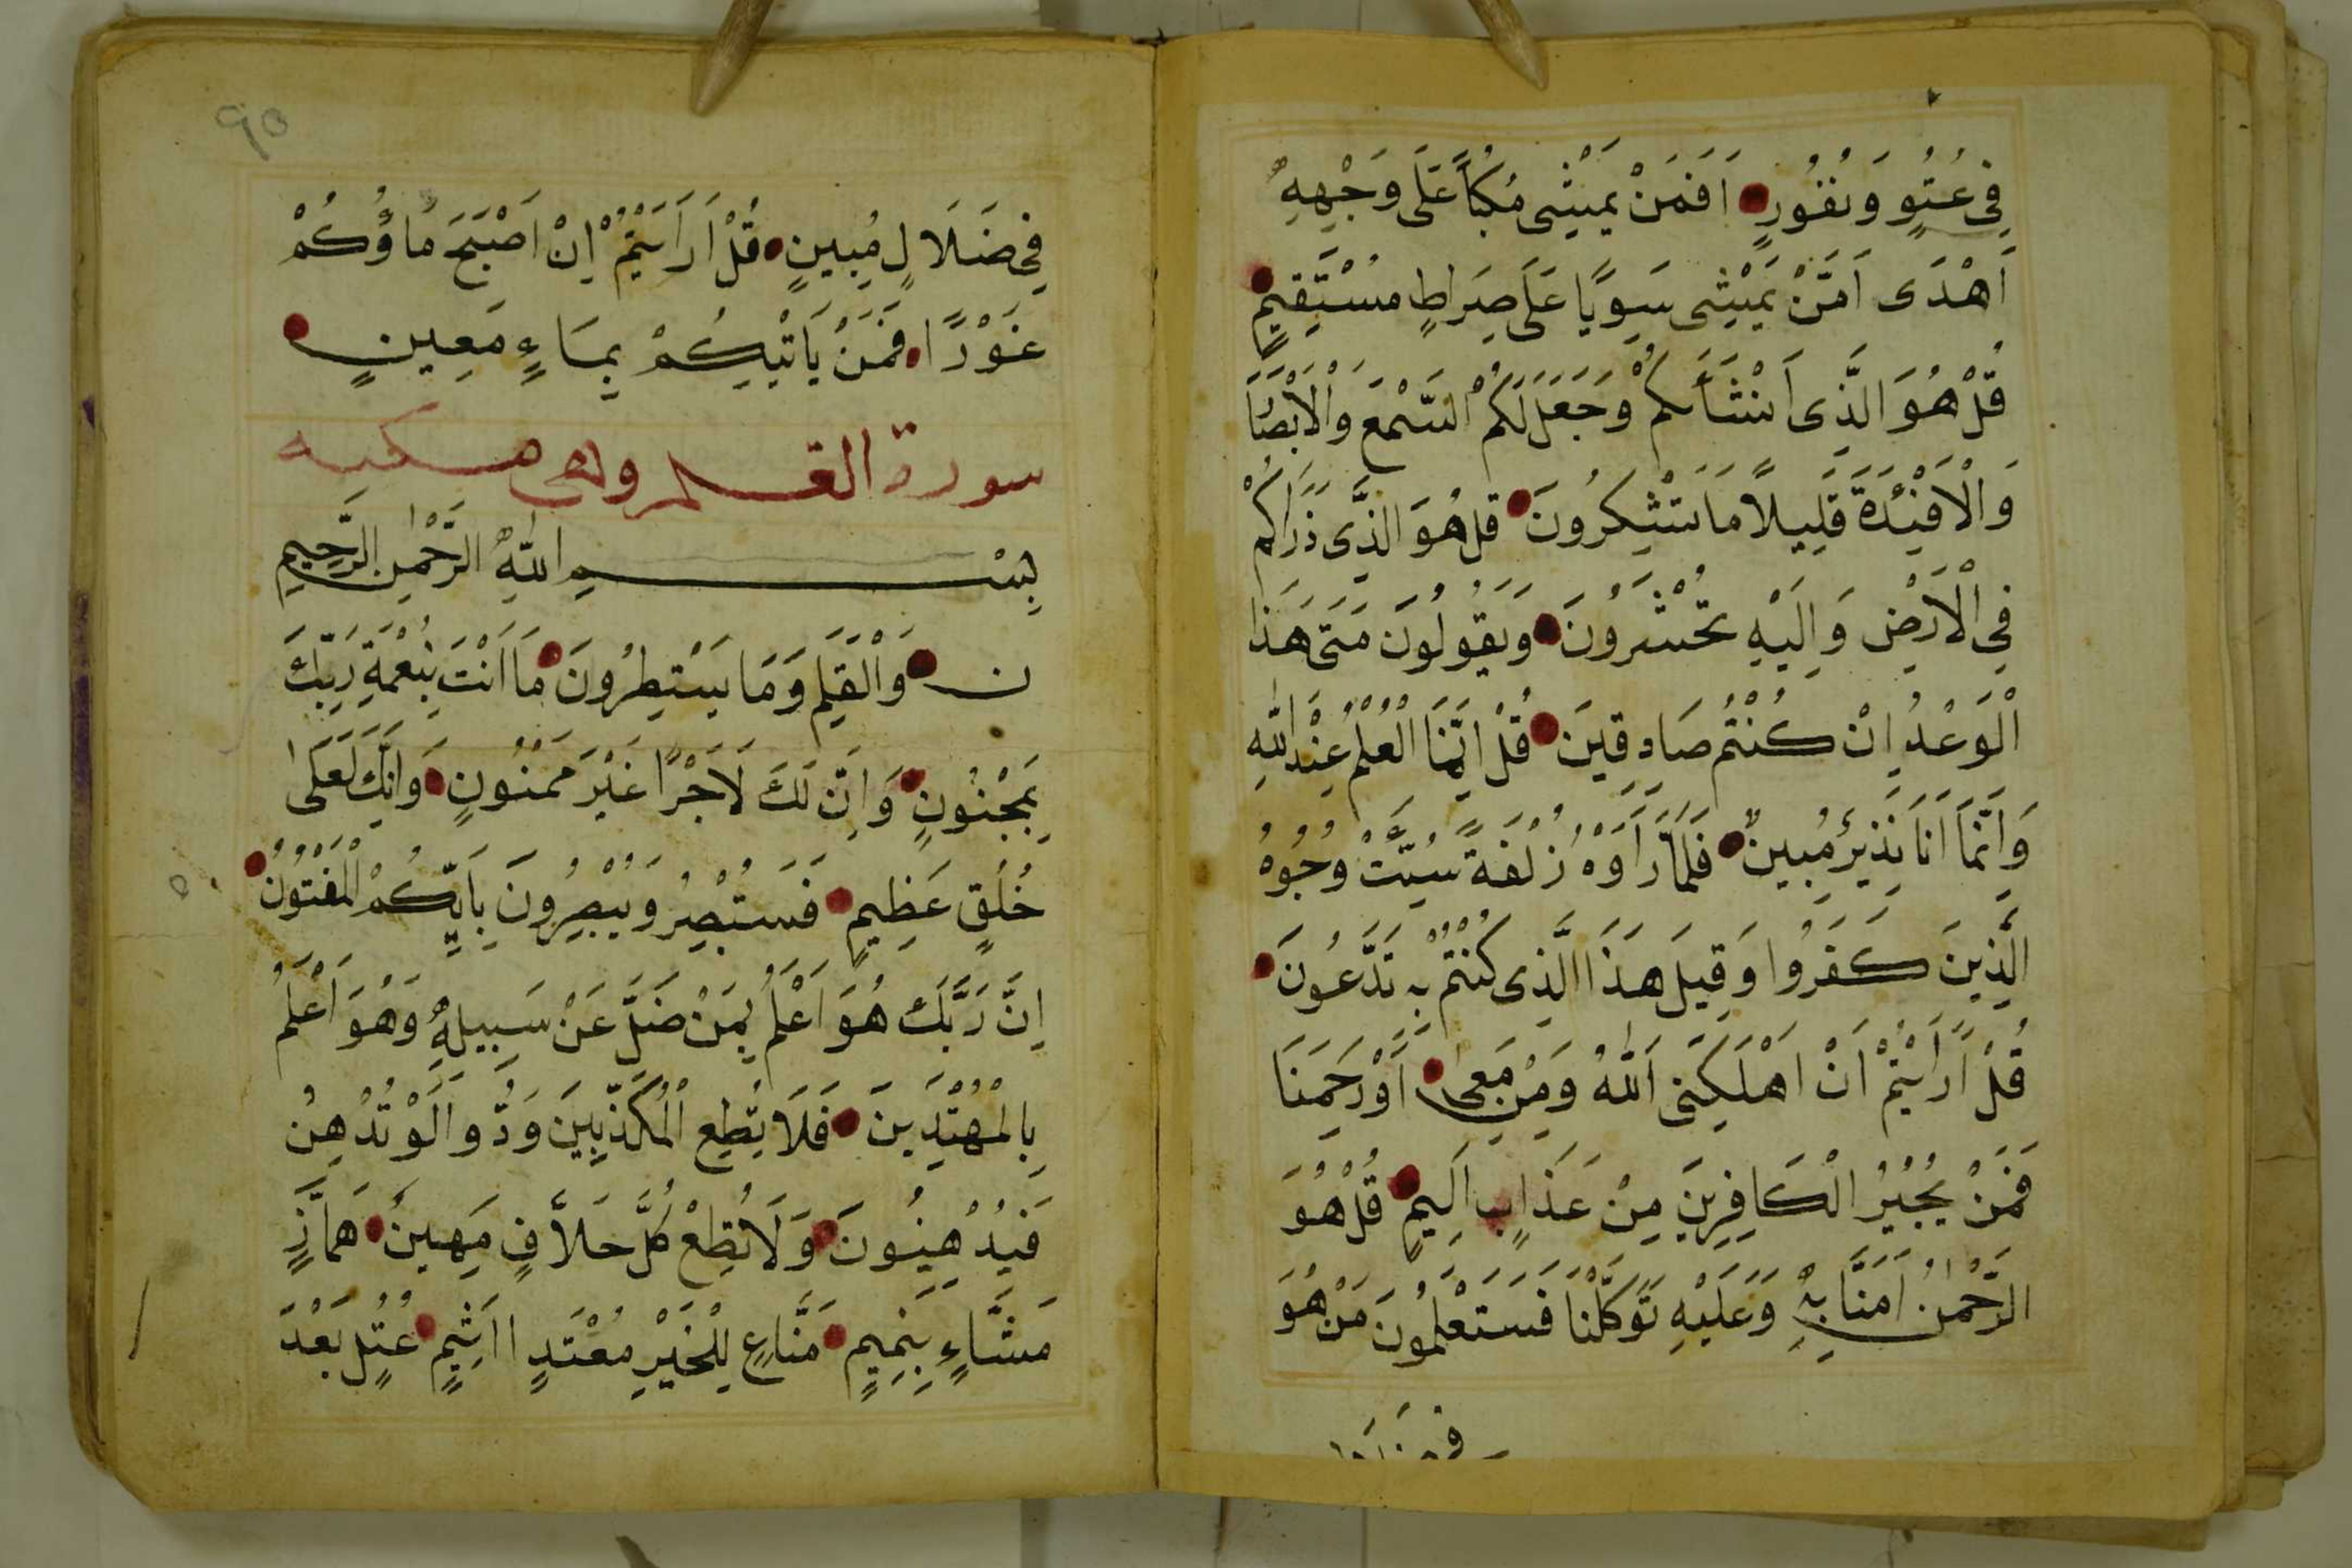 فِى عُتُوٍ وَنُفُورٍ اَفَمَنْ يَمْشِى مُكِبًّا عَلَى وَجْهِهِ
اَهْدَى اَمَّنْ يَمْشِى سَوِيًّا عَلَى صِرَاطٍ مُسْتَقِيمٍ
قُلْ هُوَ الَّذِى اَنْشَأَكُمْ وَجَعَلَ لَكُمُ السَّمْعَ وَالْاَبْصَا
وَالْاَفْئِدَةَ قَلِيلًا مَا تَشْكُرُونَ قل هُوَ الَّذِى ذَرَاَكُمْ
فِى الْاَرْضِ وَاِلَيْهِ تُحْشَرُونَ وَيَقُولُونَ مَتَى هَذَا
الْوَعْدُ اِنْ كُنْتُمْ صَادِقِينَ قُلْ اِنَّمَا الْعِلْمُ عِنْدَ اللّٰهِ
وَاِنَّمَا اَنَا نَذِيرٌ مُبِينٌ فَلَمَّا رَاَوْهُ زُلْفَةً سُيِّتْ وُجُوهُ
الَّذِينَ كَفَرُوا وَقِيلَ هَذَا الَّذِى كُنْتُمْ بِهِ تَدَّعُونَ
قُلْ اَرَاَيْتُمْ اَنْ اَهْلَكَنِىَ اللّٰهُ وَمَنْ مَعِىَ اَوْ رَحِمَنَا
فَمَنْ يُجِيْرُ الْكَافِرِينَ مِنْ عَذَابٍ اَلِيمٍ قُلْ هُوَ
الرَّحْمٰنُ اٰمَنَّا بِهِ وَعَلَيْهِ تَوَكَّلْنَا فَسَتَعْلَمُونَ مَنْ هُوَ
٩٥
فِى ضَلَالٍ مُبِينٍ قُلْ اَرَاَيْتُمْ اِنْ اَصْبَحَ مَاؤُكُمْ
غَوْرًا فَمَنْ يَاْتِيكُمْ بِمَاءٍ مَعِينٍ
سورة القلم وهى مكيه
بِسْمِ اللّٰهِ الرَّحْمٰنِ الرَّحِيمِ
ن وَالْقَلَمِ وَمَا يَسْطُرُونَ مَا اَنْتَ بِنِعْمَةِ رَبِّكَ
بِمَجْنُونٍ وَاِنَّ لَكَ لَاَجْرًا غَيْرَ مَمْنُونٍ وَاِنَّكَ لَعَلٰى
خُلُقٍ عَظِيمٍ فَسَتُبْصِرُ وَيُبْصِرُونَ بِاَيِّكُمُ الْمَفْتُونُ
اِنَّ رَبَّكَ هُوَ اَعْلَمُ بِمَنْ ضَلَّ عَنْ سَبِيلِهِ وَهُوَ اَعْلَمُ
بِالْمُهْتَدِينَ فَلَا تُطِعِ الْمُكَذِّبِينَ وَدُّوا لَوْ تُدْهِنُ
فَيُدْهِنُونَ وَلَا تُطِعْ كُلَّ حَلَّافٍ مَهِينٍ هَمَّازٍ
مَشَّاءٍ بِنَمِيمٍ مَنَّاعٍ لِلْخَيْرِ مُعْتَدٍ اَثِيمٍ عُتُلٍّ بَعْدَ